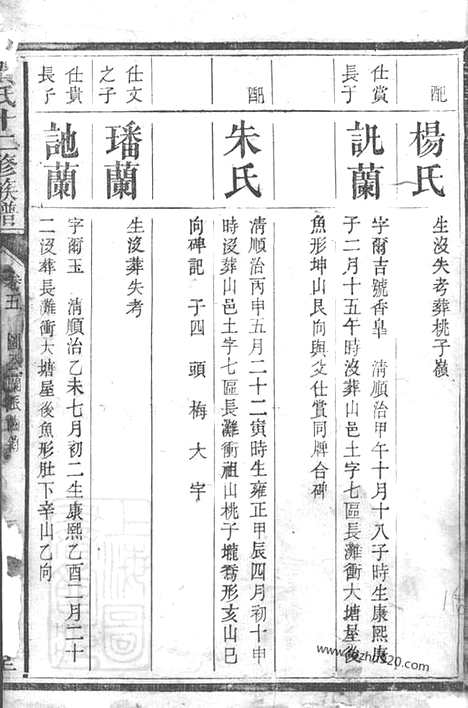 配
楊氏
生沒失考葬桃子嶺
仕賞
長子
訊蘭
字爾吉號香皐 清順治甲午十月十八子時生康熙庚
子二月十五午時沒葬山邑土字七區長灘衝大塘屋後
魚形坤山艮向與父仕賞同牌合碑
配
朱氏
清順治丙申五月二十二寅時生雍正甲辰四月初十申
時沒葬山邑土字七區長灘衝祖山桃子壠喬形亥山巳
向碑記 子四 頭 梅 大 宇
仕文
之子
璠蘭
生沒葬失考
仕貴
長子
訑蘭
字爾玉 清順治乙未七月初二生康熙乙酉二月二十
二沒葬長灘衝大塘屋後魚形肚下辛山乙向
氏十二修族譜
卷五